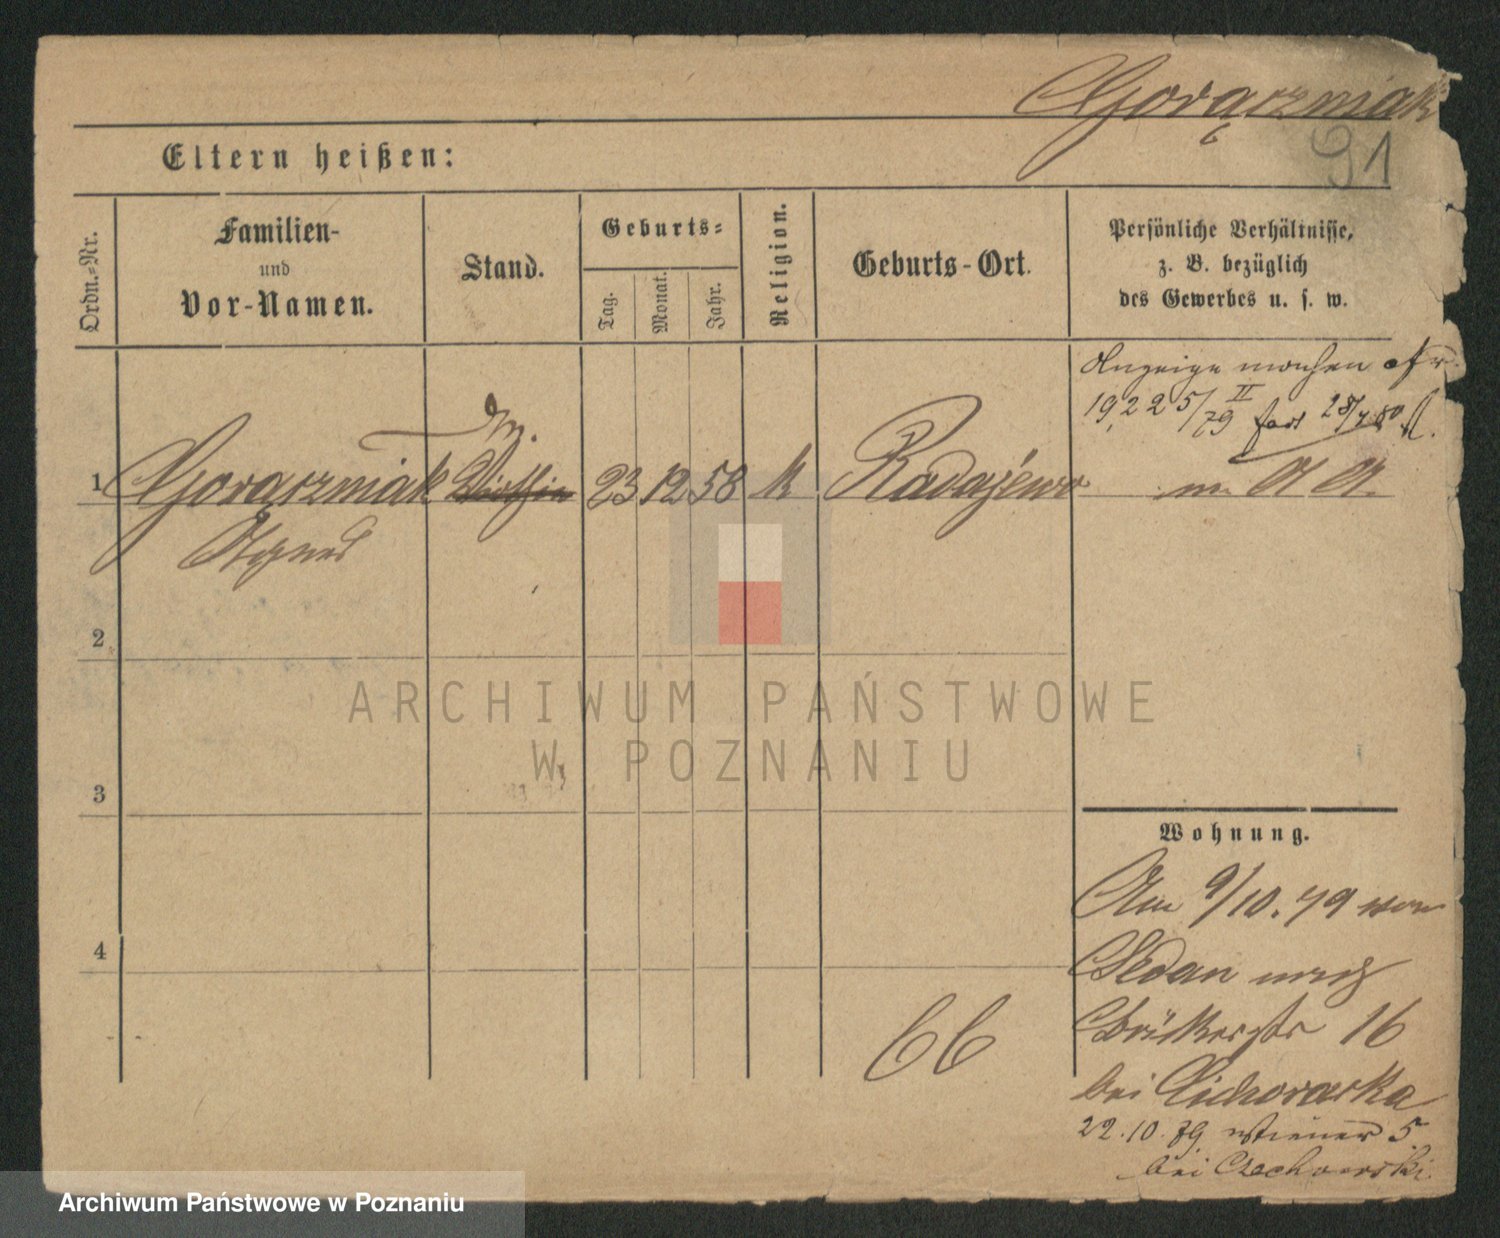 Gorączniak
91
Eltern heißen:
Ordn.-Nr.
Familien-
und
Vor-Namen.
Stand.
Geburts-
Tag.
Monat.
Jahr.
Religion.
Geburts-Ort.
Persönliche Verhältnisse,
z. B. bezüglich
des Gewerbes u. s. w.
1
Gorączniak
Agnes
23
12
58
k
Radajewo
Anzeige machen
19,225/79 II
2
3
4
Wohnung.
Am 9/10.79 von
Sedan nach
16
bei Cichorarska
22.10.79 Wiener 5
bei Czechowski
66
ARCHIWUM PAŃSTWOWE
W POZNANIU
Archiwum Państwowe w Poznaniu